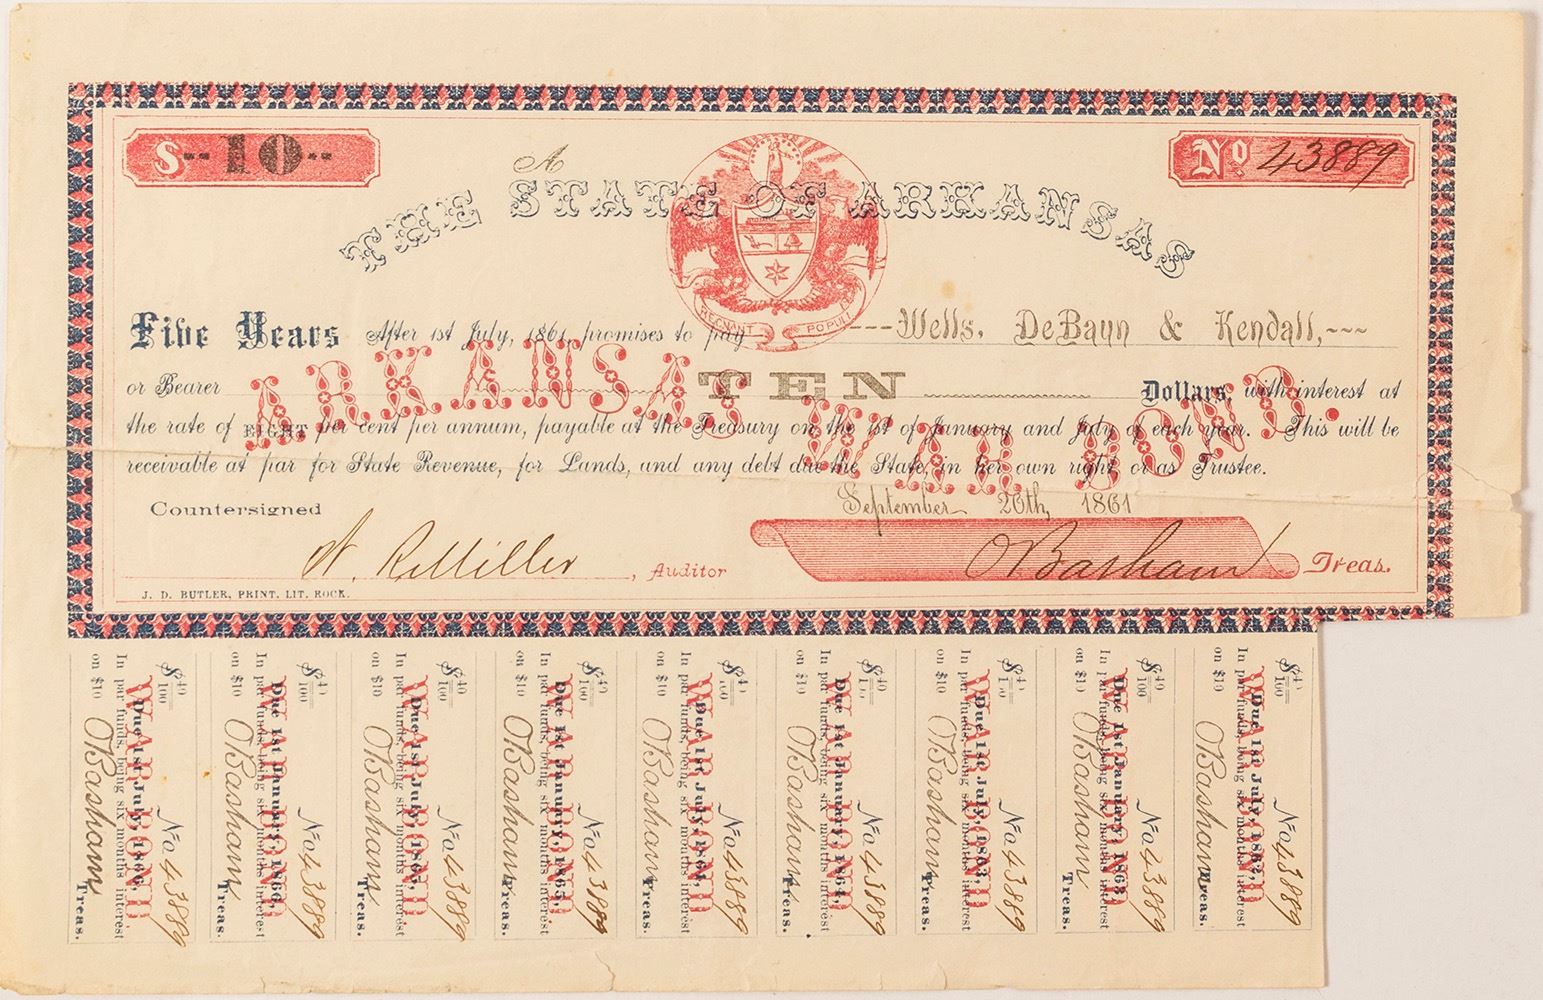 $--10--
No 43889
A
THE STATE OF ARKANSAS
REGNANT POPULI
Five Years After 1st July, 1861, promises to pay ---Wells, DeBaun & Kendall,---
or Bearer TEN Dollars, with interest at
ARKANSAS WAR BOND.
the rate of EIGHT per cent per annum, payable at the Treasury on the 1st of January and July of each year. This will be
receivable at par for State Revenue, for Lands, and any debt due the State, in her own right, or as Trustee.
September 26th, 1861
Countersigned
W. R. Miller, Auditor
O Basham Treas.
J. D. BUTLER, PRINT. LIT. ROCK.
$ 40/100 No 43889
WAR BOND
Due 1st July, 1866,
In par funds, being six months interest
on $10 O Basham Treas.
$ 40/100 No 43889
WAR BOND
Due 1st January, 1866,
In par funds, being six months interest
on $10 O Basham Treas.
$ 40/100 No 43889
WAR BOND
Due 1st July, 1865,
In par funds, being six months interest
on $10 O Basham Treas.
$ 40/100 No 43889
WAR BOND
Due 1st January, 1865,
In par funds, being six months interest
on $10 O Basham Treas.
$ 40/100 No 43889
WAR BOND
Due 1st July, 1864,
In par funds, being six months interest
on $10 O Basham Treas.
$ 40/100 No 43889
WAR BOND
Due 1st January, 1864,
In par funds, being six months interest
on $10 O Basham Treas.
$ 40/100 No 43889
WAR BOND
Due 1st July, 1863,
In par funds, being six months interest
on $10 O Basham Treas.
$ 40/100 No 43889
WAR BOND
Due 1st January, 1863,
In par funds, being six months interest
on $10 O Basham Treas.
$ 40/100 No 43889
WAR BOND
Due 1st July, 1862,
In par funds, being six months interest
on $10 O Basham Treas.